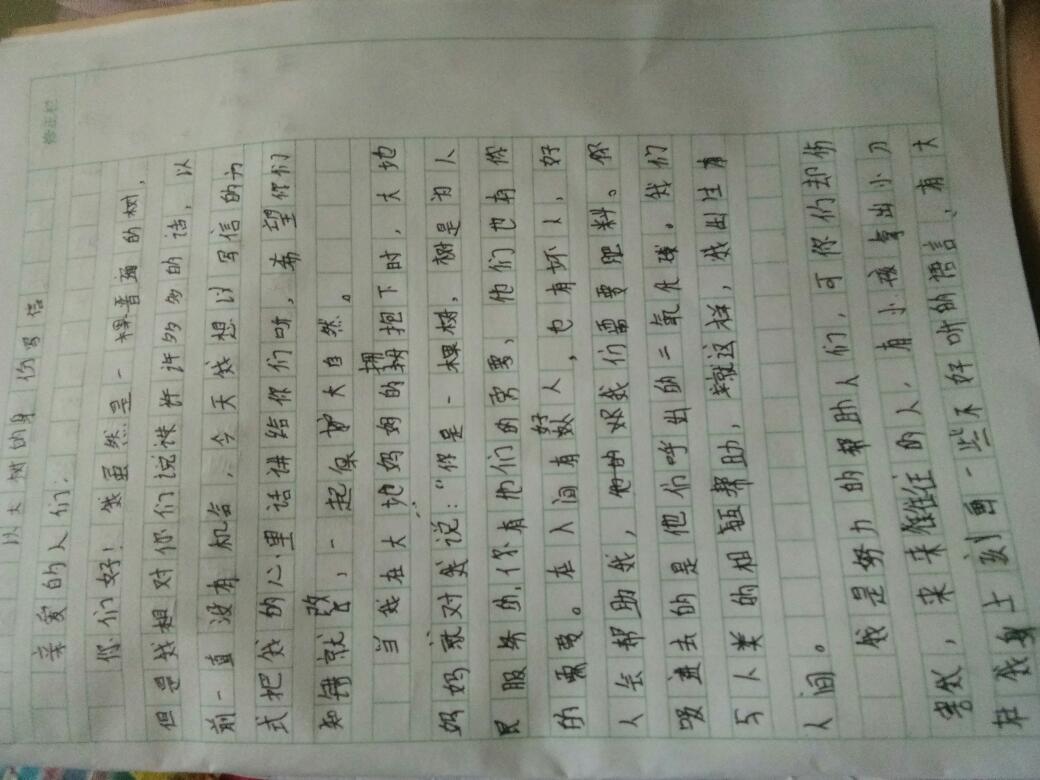 以大树的身份写信
亲爱的人们:
你们好!我虽然是一棵普通的树,
但是我想对你们说许许多多的话,以
前一直没有机会,今天我想以写信的方
式把我的心里话讲给你们听,希望你们
知错就改,一起保护大自然。
当我在大地妈妈的拥抱下时,大地
妈妈就对我说:“你是一棵树,树是为人
民服务的,你有他们的需要,他们也有你
的需要。在人间有好人,也有坏人,好
人会帮助我,他们需要肥料。你
吸进去的是他们呼出的二氧化碳。我们
与人类的相互帮助,就这样,我出生在
人间。
我是努力的帮助人们,可你们却伤
害我,来来往往的人,有小孩拿出小刀
在我身上刻画一些不好听的语言、有大
修正栏